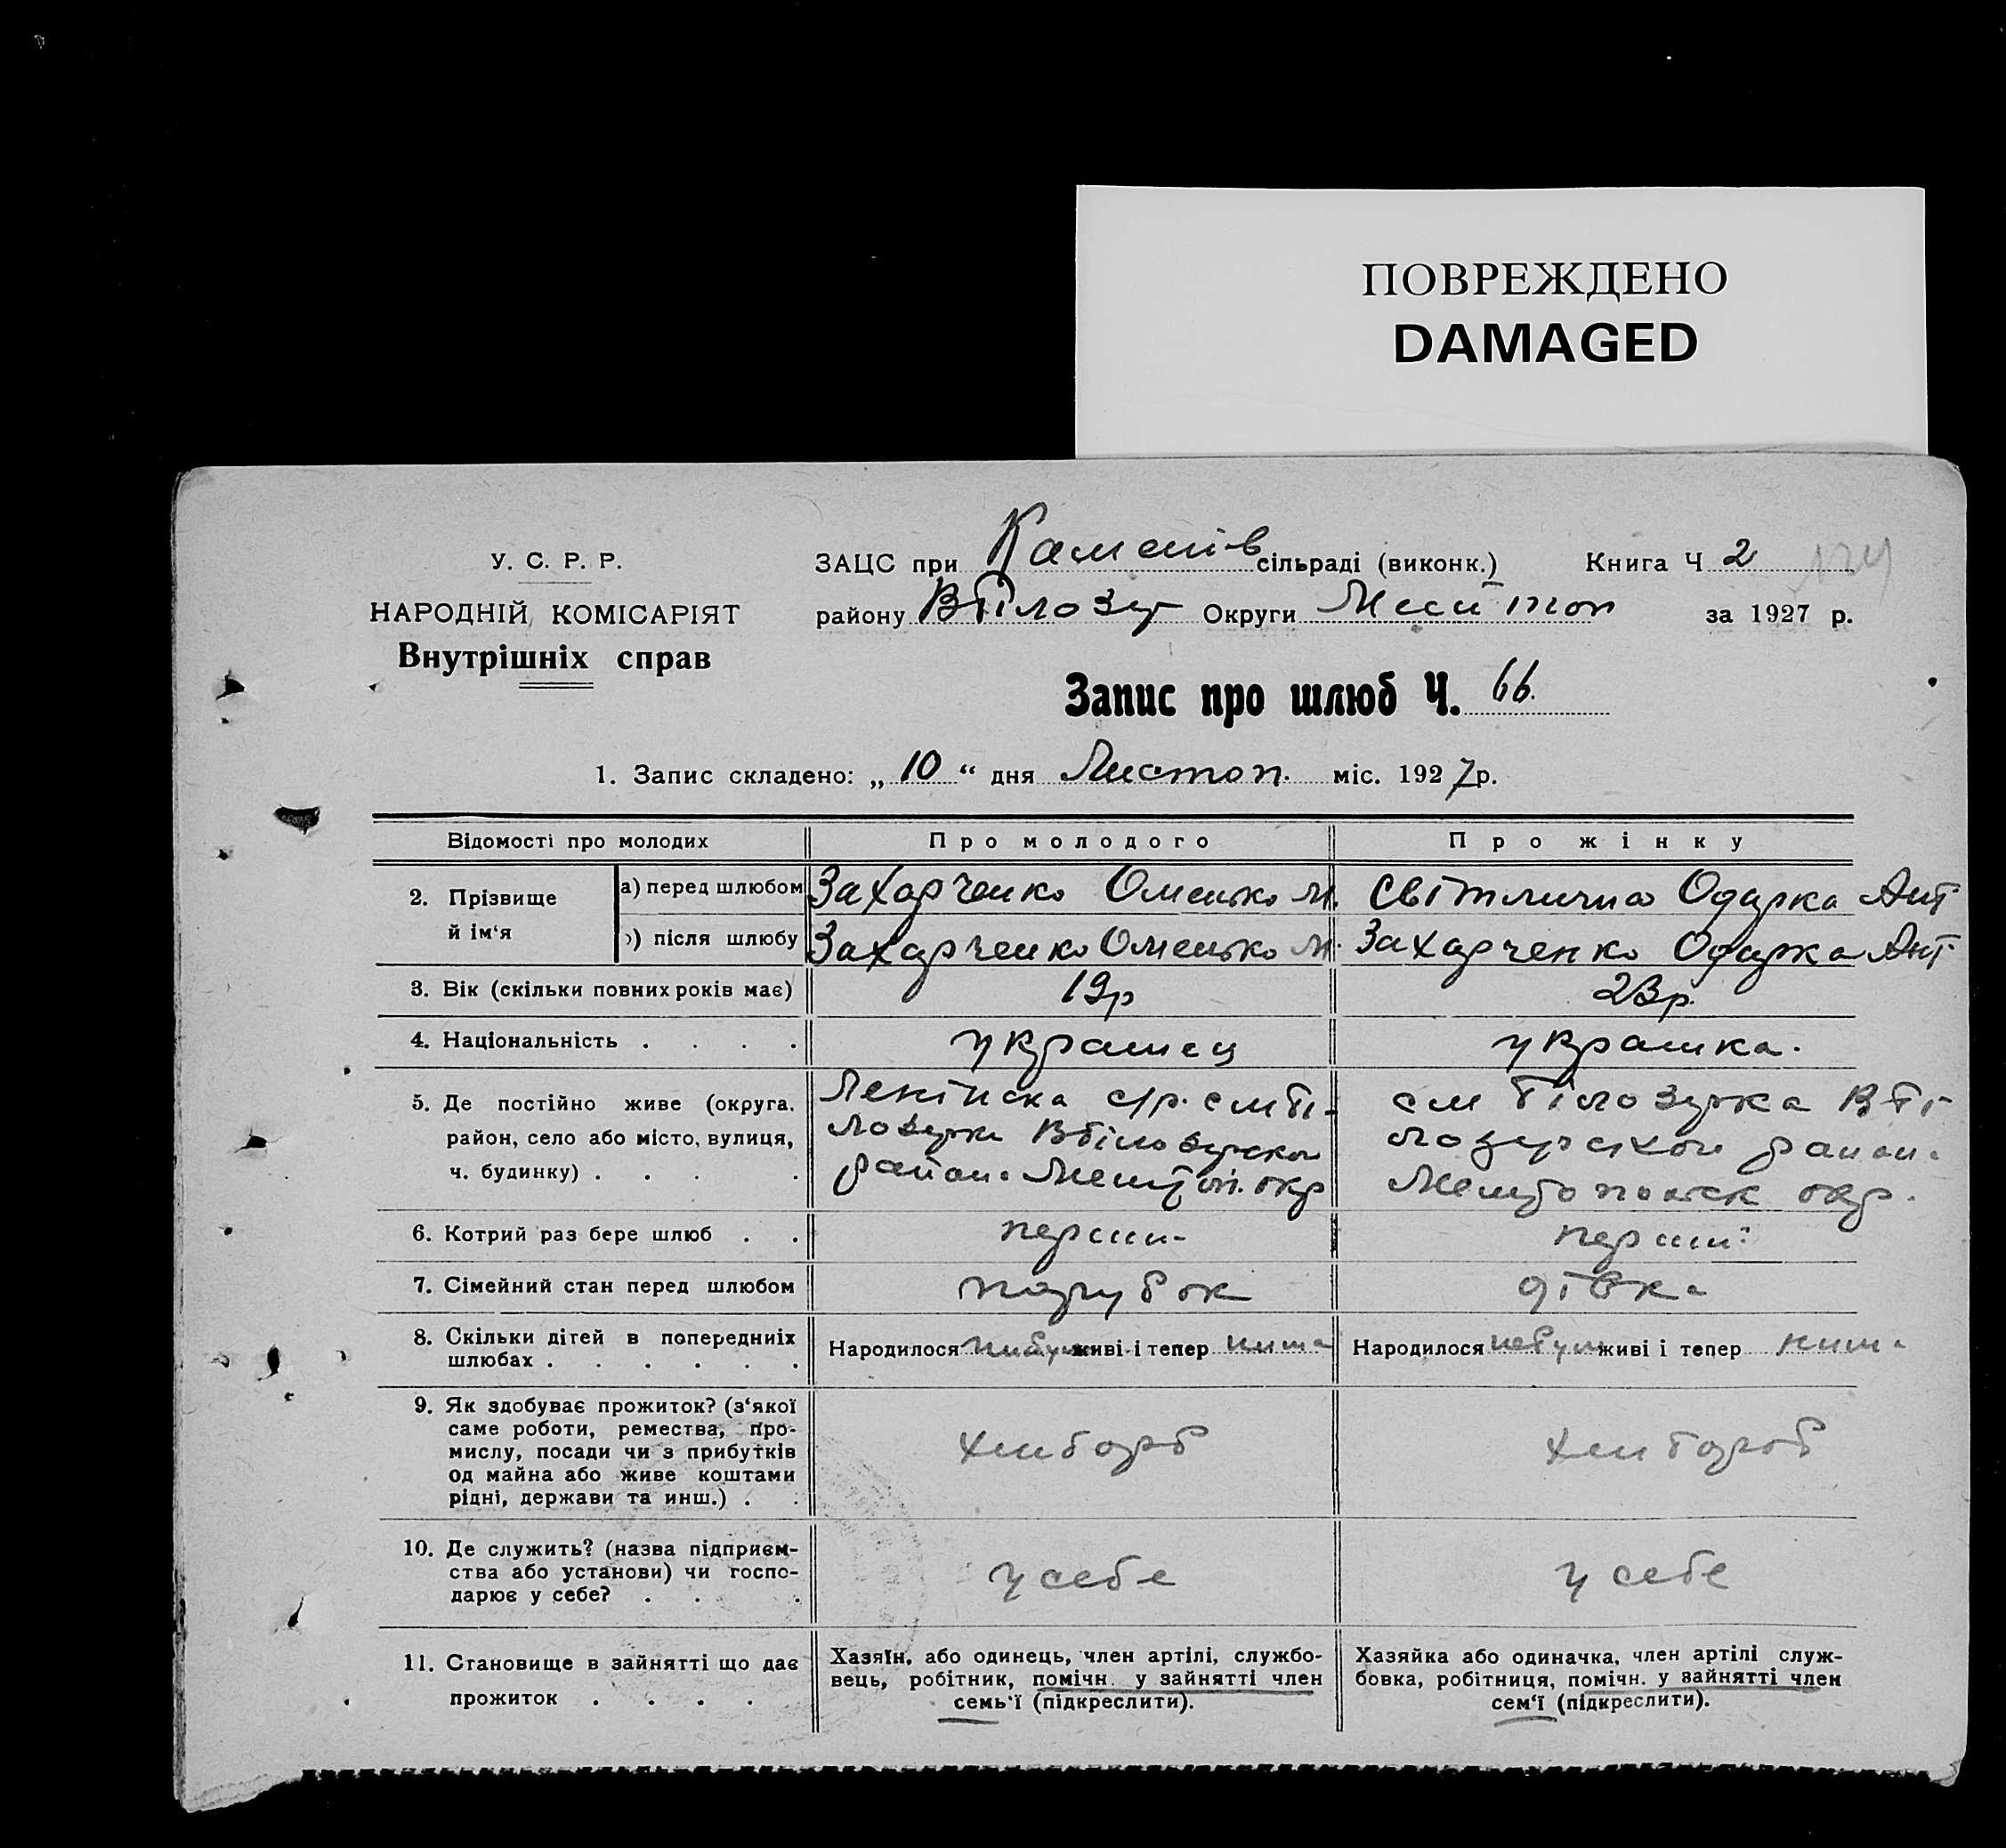 ПОВРЕЖДЕНО
DAMAGED
У. С. Р. Р.
НАРОДНІЙ КОМІСАРІЯТ
Внутрішніх справ
ЗАЦС при Каменів сільраді (виконк.) Книга Ч 2
району Вбілозер Округи за 1927 р.
Запис про шлюб Ч. 66.
1. Запис складено: „ 10 “ дня Листоп. міс. 1927 р.
Відомості про молодих
Про молодого
Про жінку
2. Прізвище й ім‘я
а) перед шлюбом Захарченко Омелько М. Світлична Одарка Ант
б) після шлюбу Захарченко Омелько М. Захарченко Одарка Ант
3. Вік (скільки повних років має) 19р 23р.
4. Національність . . . . українец українка.
5. Де постійно живе (округа,
район, село або місто, вулиця,
ч. будинку) . . . .
с/р. см Бі-
лозерка Вбілозерскои
район. окр
см Білозерка Вбі-
лозерскои район.
окр.
6. Котрий раз бере шлюб . . перший перший
7. Сімейний стан перед шлюбом парубок дівка
8. Скільки дітей в попередниіх
шлюбах . . . . . .
Народилося небули живі і тепер нима
Народилося небули живі і тепер нима
9. Як здобуває прожиток? (з‘якої
саме роботи, ремества, про-
мислу, посади чи з прибутків
од майна або живе коштами
рідні, держави та инш.) . .
хлибороб
хлибороб
10. Де служить? (назва підприєм-
ства або установи) чи госпо-
дарює у себе? . . .
у себе
у себе
11. Становище в зайнятті що дає
прожиток . . . .
Хазяїн, або одинець, член артілі, службо-
вець, робітник, помічн. у зайнятті член
семь‘ї (підкреслити).
Хазяйка або одиначка, член артілі служ-
бовка, робітниця, помічн. у зайнятті член
сем‘ї (підкреслити).